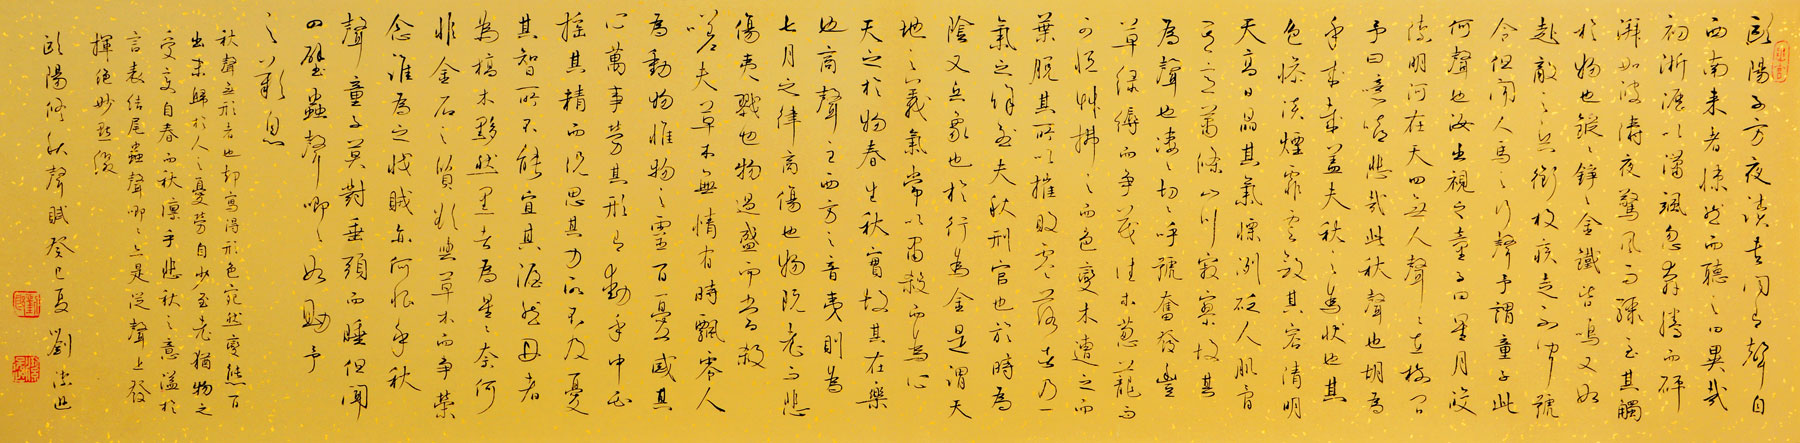 歐陽子方夜讀書聞有聲自
西南來者悚然而聽之曰異哉
初淅瀝以瀟颯忽奔騰而砰
湃如波濤夜驚風雨驟至其觸
於物也鏦鏦錚錚金鐵皆鳴又如
赴敵之兵銜枚疾走不聞號
令但聞人馬之行聲予謂童子此
何聲也汝出視之童子曰星月皎
潔明河在天四無人聲聲在樹間
予曰噫嘻悲哉此秋聲也胡為
乎來哉蓋夫秋之為狀也其
色慘淡煙霏雲斂其容清明
天高日晶其氣慄冽砭人肌骨
其意蕭條山川寂寥故其
為聲也淒淒切切呼號奮發豐
草綠縟而爭茂佳木蔥蘢而
可悅草拂之而色變木遭之而
葉脫其所以摧敗零落者乃一
氣之餘烈夫秋刑官也於時為
陰又兵象也於行為金是謂天
地之義氣常以肅殺而為心
天之於物春生秋實故其在樂
也商聲主西方之音夷則為
七月之律商傷也物既老而悲
傷夷戮也物過盛而當殺
嗟夫草木無情有時飄零人
為動物惟物之靈百憂感其
心萬事勞其形有動乎中必
搖其精而況思其力所不及憂
其智所不能宜其渥然丹者
為槁木黟然黑者為星星奈何
非金石之質欲與草木而爭榮
念誰為之戕賊亦何恨乎秋
聲童子莫對垂頭而睡但聞
四壁蟲聲唧唧如助予
之歎息
秋聲無形者也卻寫得形色宛然變態百
出末歸於人之憂勞自少至老猶物之
受變自春而秋凜乎悲秋之意溢於
言表結尾蟲聲唧唧亦是從聲上發
揮絕妙點綴
歐陽修秋聲賦癸巳夏劉